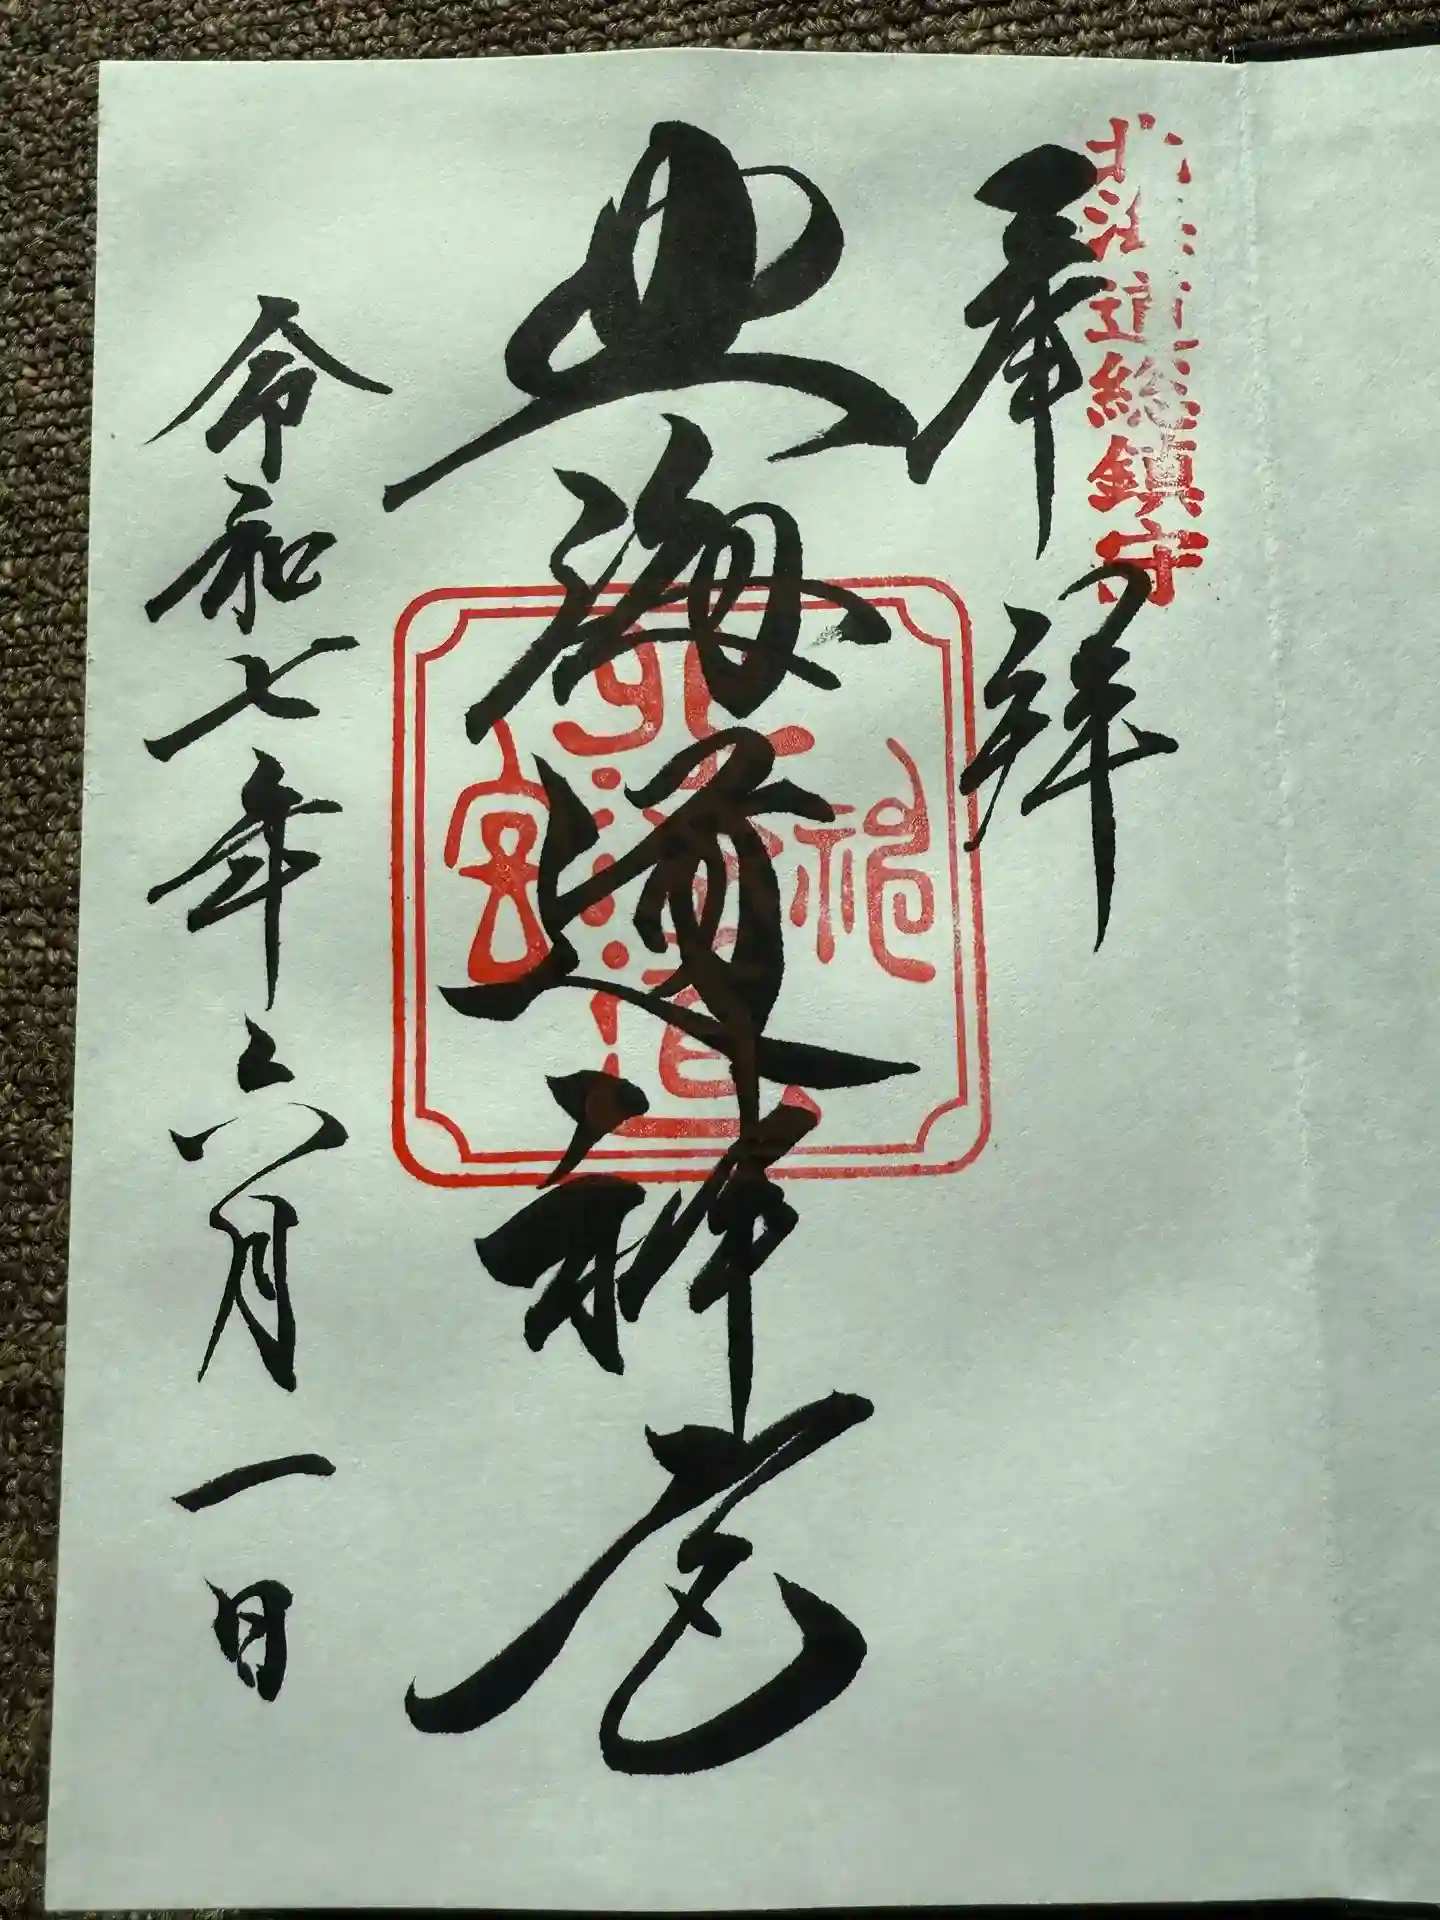 北海道総鎮守
奉拝
北海道神宮
北海道神宮
令和七年六月一日